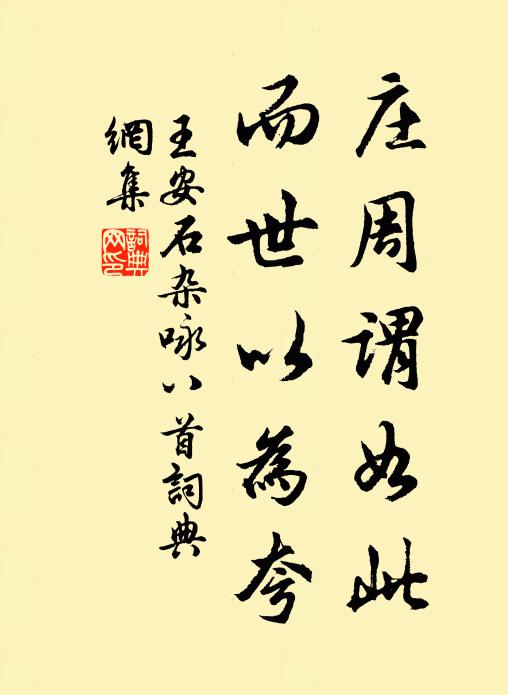 庄周谓如此
而世以為夸
王安石杂咏八首詞典
網集
詞典网印